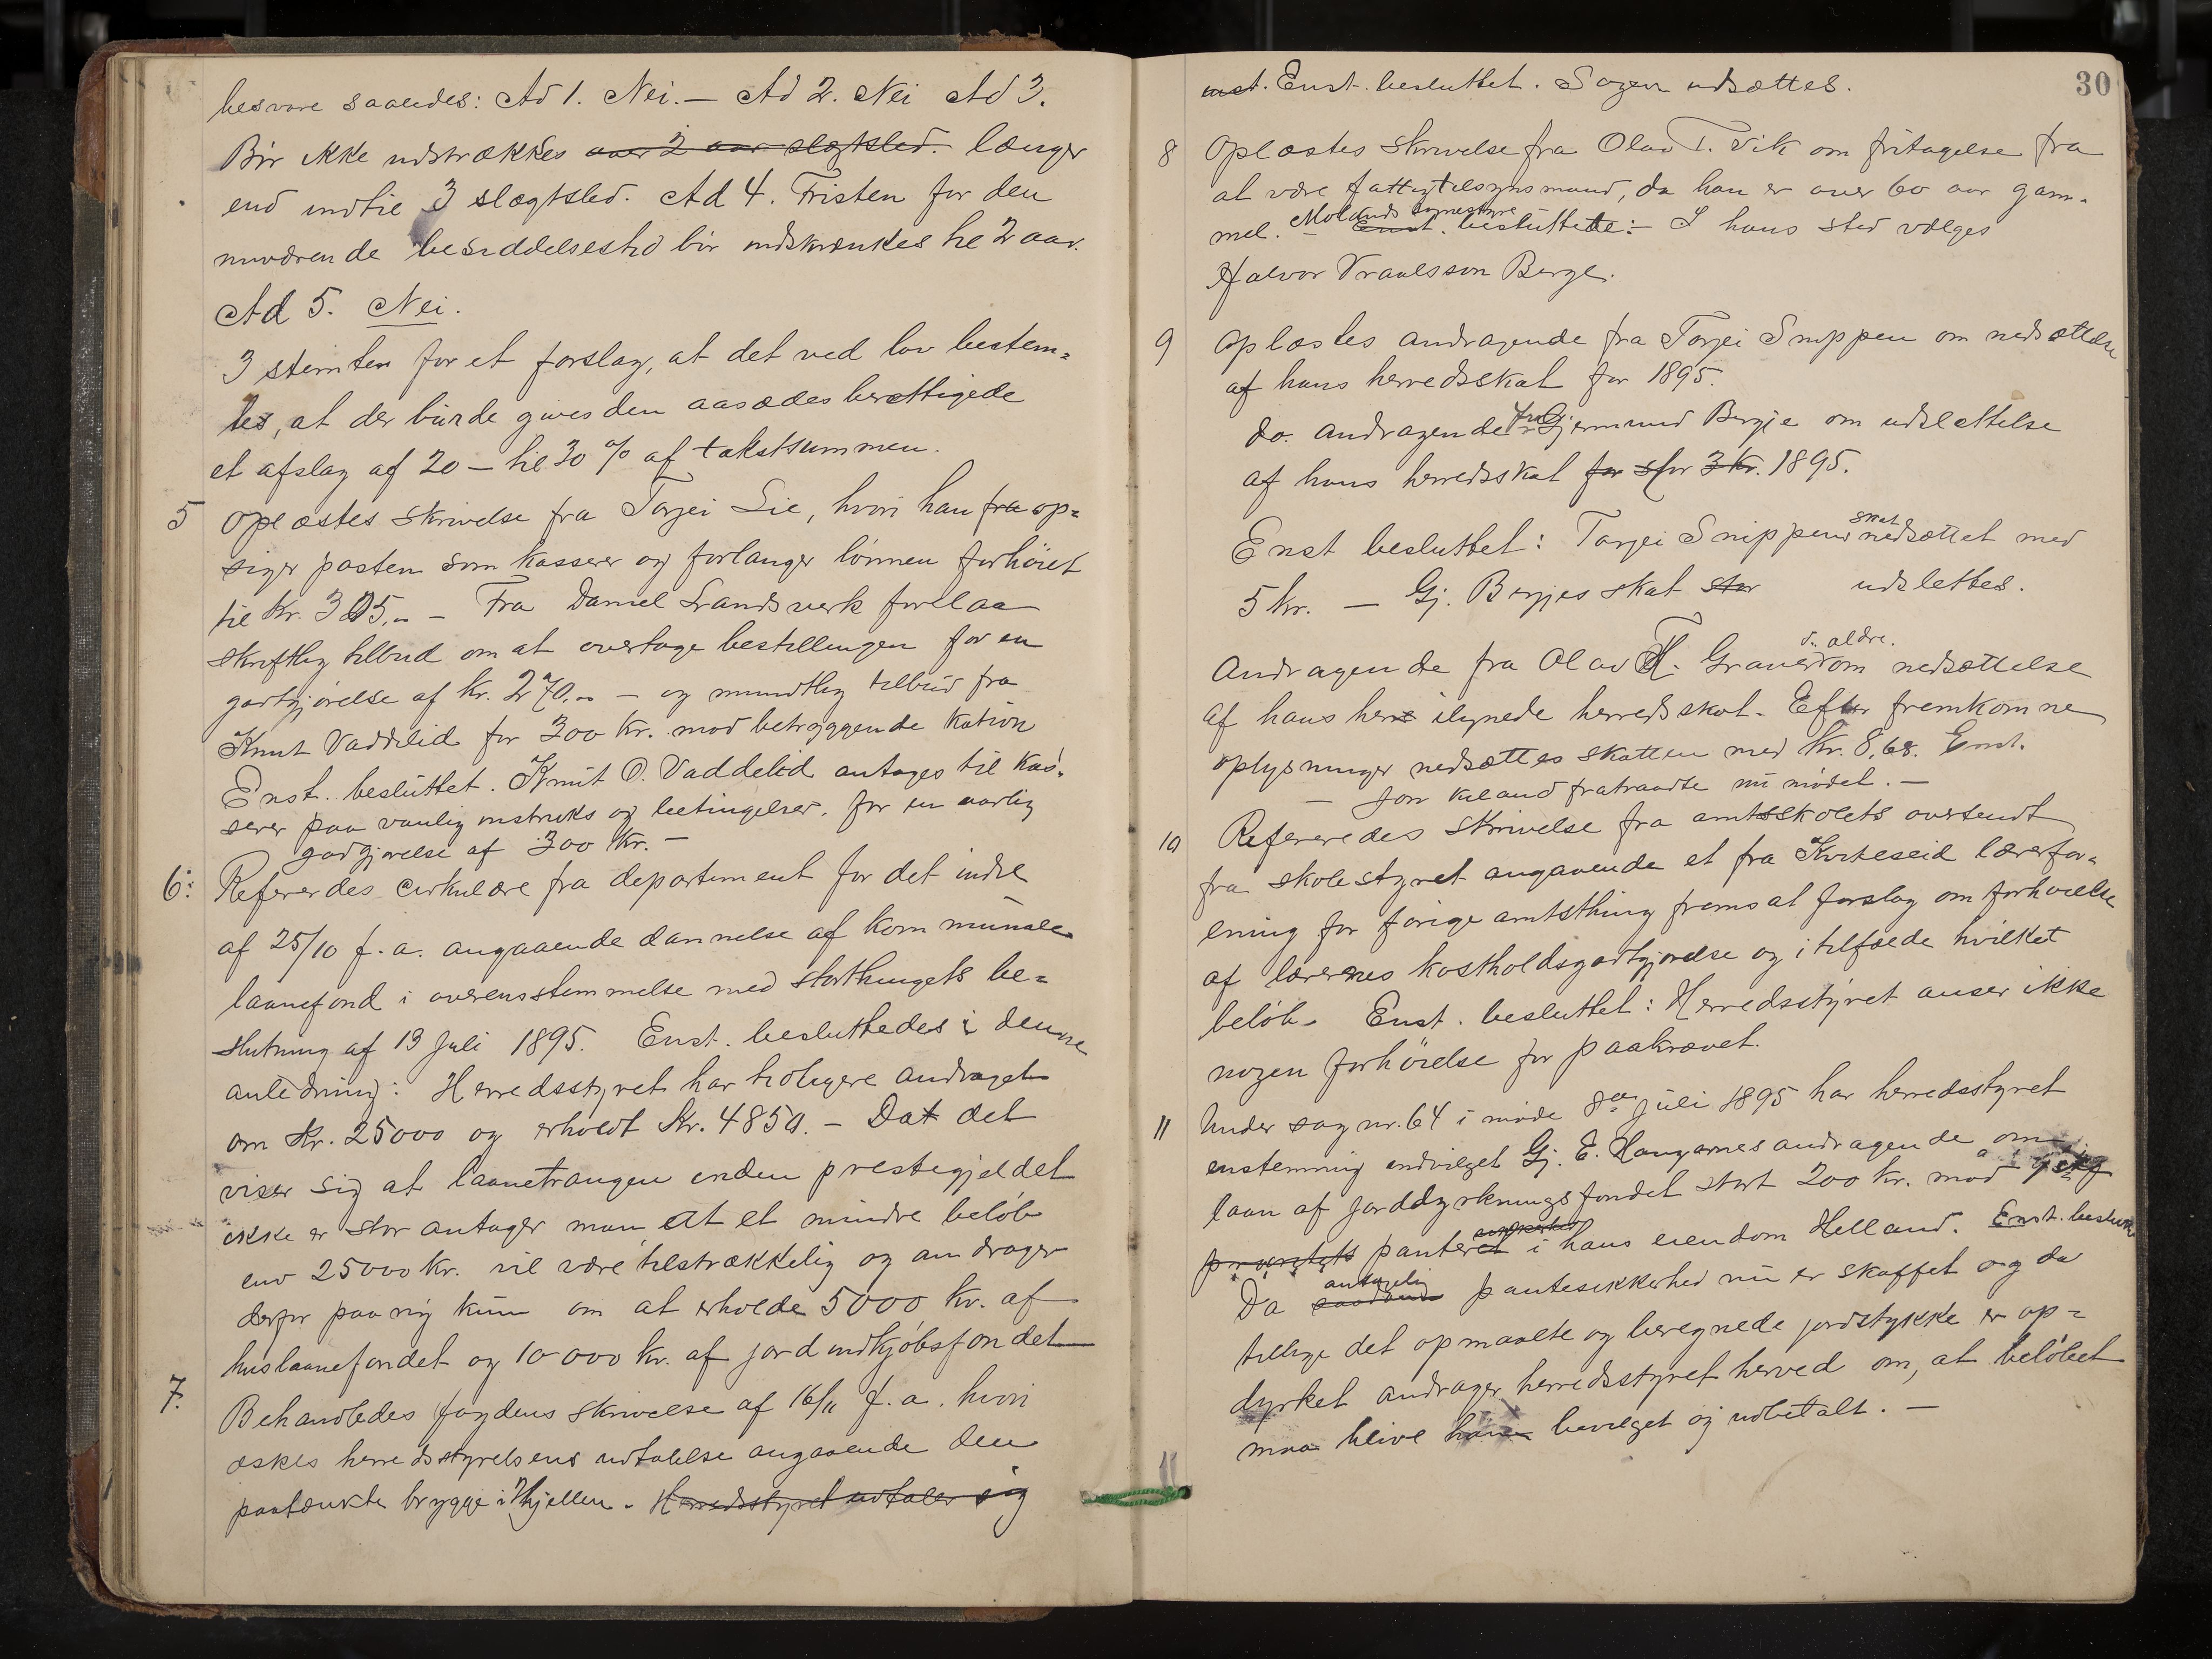 besvare saaledes: Ad 1. Nei. — Ad 2. Nei Ad 3.
Bör ikke udstrækkes over 2 aar slægtsled. længer
end indtil 3 slægtsled. Ad 4. Fristen for den
nuværende besiddelsestid bör indskrænkes til 2 aar.
Ad 5. Nei.
3 stemten for et forslag, at det ved lov bestem=
tes, at der burde gives den aasædesberettigede
et afslag af 20 — til 30 % af takstsummen.
5 Oplæstes skrivelse fra Torjei Lie, hvori han fra op=
siger posten som kasserer og forlanger lönnen forhöiet
til Kr. 305,00 — Fra Daniel Landsverk forelaa
skriftlig tilbud om at overtage bestillingen for en
godtgjörelse af Kr. 270,00 — og mundtlig tilbud fra
Knut Vaddelid for 300 Kr. mod betryggende kation
Enst. besluttet. Knut O. Vaddelid antages til kas=
serer paa vanlig instruks og betingelser, for en aarlig
godgjörelse af 300 Kr. —
6: Refereredes cirkulære fra departement for det indre
af 25/10 f. a. angaaende dannelse af kommunale
laanefond i overensstemmelse med storthingets be=
slutning af 13 Juli 1895. Enst. besluttedes i denne
anledning: Herredsstyret har tidligere andraget
om Kr. 25000 og erholdt Kr. 4850. — Dat det
viser sig at laanetrangen inden prestegjeldet
ikke er stor antager man at et mindre belöb
end 25000 Kr. vil være tilstrækkelig og andrager
derfor paa ny kun om at erholde 5000 Kr. af
huslaanefondet og 10000 Kr. af jordindkjöbsfondet
7. Behandledes fogdens skrivelse af 16/11 f. a. hvori
æskes herredsstyrelsens udtalelse angaaende den
paatænkte brygge i Thjellen. Herredsstyret udtaler sig
30
Enst. besluttet. Sagen udsættes.
8 Oplæstes skrivelse fra Olav T. Vik om fritagelse fra
at være fattigtilsynsmand, da han er over 60 aar gam=
mel. — Enst. besluttede: — I hans sted vælges
Halvor Vraalsson Berge.
9 Oplæstes andragende fra Torjei Snippen om nedsættelse
af hans herredsskat for 1895.
do. andragende fra Gjermund Bergje om udslettelse
af hans herredsskat for stor 3 Kr. 1895.
skat
Enst besluttet: Torjei Snippens nedsættet med
5 Kr. — Gj. Bergjes skat stor udslettes.
d. ældre.
Andragende fra Olav T. Graver om nedsættelse
af hans ilignede herredsskat. Efter fremkomne
oplysninger nedsættes skatten med Kr. 8,68. Enst.
— Jon Kiland fratraadte nu mödet. —
10 Refereredes skrivelse fra amtsskolets oversendt
fra skolestyret angaaende et fra Kviteseid lærerfor=
ening for forige amtsthing fremsat forslag om forhöielse
af lærernes kostholdsgodtgjörelse og i tilfælde hvilket
belöb. Enst. besluttet: Herredsstyret anser ikke
nogen forhöielse for paakrævet.
11 Under sag nr. 64 i möde 8de Juli 1895 har herredsstyret
enstemmig indvilget Gj. E. Haugarnes andragende om
laan af jorddyrkningsfondet stort 200 Kr. mod
prioritets panteret i hans eiendom Helland. Enst. beslut.
antagelig
Da saadan pantesikkerhed nu er skaffet og da
tillige det opmaalte og beregnede jordstykke er op=
dyrket andrager herredsstyret herved om, at belöbet
maa blive ham bevilget og udbetalt. —
11